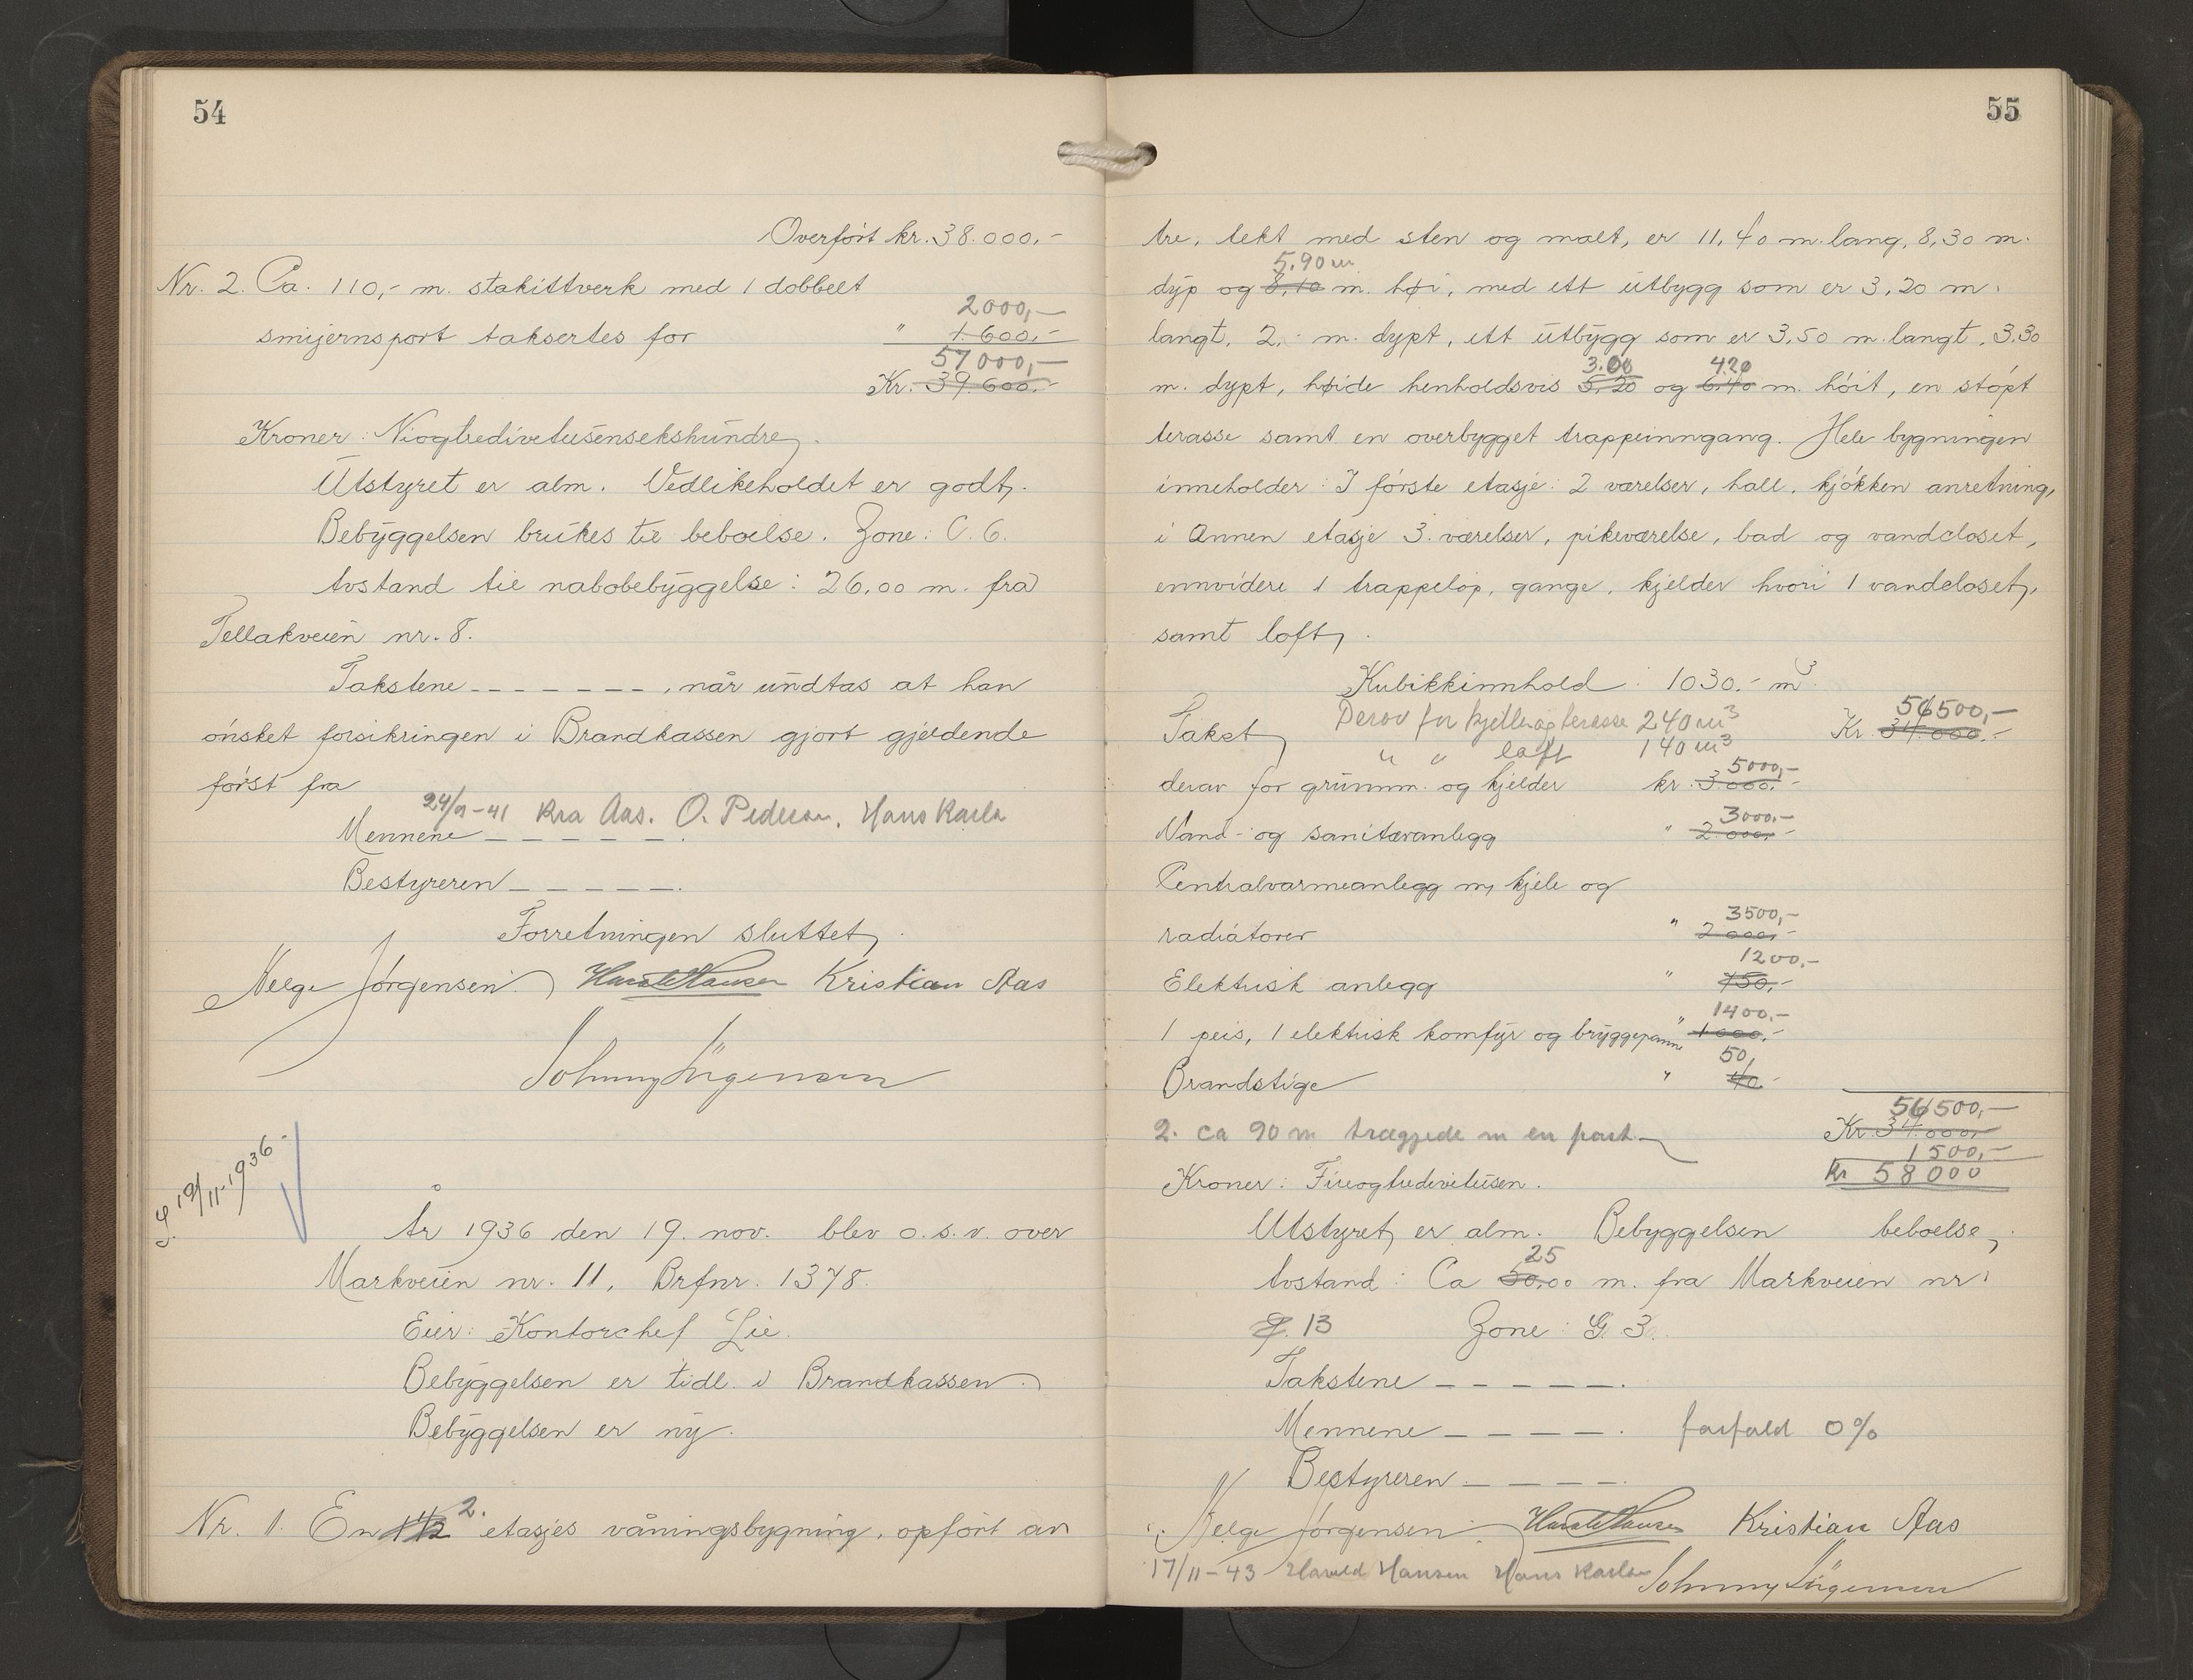 54
Overført kr. 38.000.-
Nr. 2. Ca. 110,- m. stakittverk med 1 dobbelt
2000,-
smijernsport taksertes for " 1.600.-
57000,-
Kr. 39.600.-
Kroner: Niogtredivetusensekshundre.
Utstyret er alm. Vedlikeholdet er godt.
Bebyggelsen brukes til beboelse. Zone: C. 6.
Avstand til nabobebyggelse: 26,00 m. fra
Tellakveien nr. 8.
Takstene - - - - - - - , når undtas at han
ønsket forsikringen i Brandkassen gjort gjeldende
først fra
24/9-41 Kra Aas. O. Pedersen, Hans Karls
Mennene - - - - - .
Bestyreren - - - - - .
Forretningen sluttet.
Helge Jørgensen Harald Hansen Kristian Aas
Johnny Jürgensen
19/11-1936.
År 1936 den 19. nov. blev o.s.v. over
Markveien nr. 11, Brfnr. 1378.
Eier: Kontorchef Lie.
Bebyggelsen er tidl. i Brandkassen.
Bebyggelsen er ny.
Nr. 1. En 1 1/2 2. etasjes våningsbygning, opført av
55
tre, tekt med sten og malt, er 11,40 m. lang, 8,30 m.
5.90 m
dyp og 8,10 m. høi, med ett utbygg som er 3,20 m.
langt, 2,- m. dypt, ett utbygg som er 3,50 m. langt, 3.30
3.00 4.20
m. dypt, høide henholdsvis 5,20 og 6.40 m. høit, en støpt
terasse samt en overbygget trappeinngang. Hele bygningen
inneholder: I første etasje: 2 værelser, hall, kjøkken anretning,
i Annen etasje 3. værelser, pikeværelse, bad og vandcloset,
ennvidere 1 trappeløp, gange, kjelder hvori 1 vandcloset,
samt loft.
Kubikkinnhold: 1030.- m3.
Derav for kjeller og terasse 240 m3 56500,-
Takst Kr. 34.000.-
" " loft 140 m3
5000,-
derav for grunnm. og kjelder kr. 3.000.-
3000.-
Vand- og sanitæranlegg " 2.000.-
Centralvarmeanlegg m, kjele og
3500,-
radiatorer " 2.000.-
1200.-
Elektrisk anlegg " 750.-
1400.-
1 peis, 1 elektrisk komfyr og bryggepanne " 1.000.-
50,
Brandstige " 40.-
56500,-
2. ca 90 m trægjede m en port Kr. 34.000.-
1500,-
Kroner: Fireogtredivetusen. Kr 58000
Utstyret er alm. Bebyggelsen beboelse.
25
Avstand: Ca 30,00 m. fra Markveien nr.
9. 13 Zone: G. 3.
Takstene - - - - - .
Mennene - - - - . forfald 0%
Bestyreren - - - - .
Helge Jørgensen Harald Hansen Kristian Aas
17/11-43 Harald Hansen Hans Karls Johnny Jürgensen